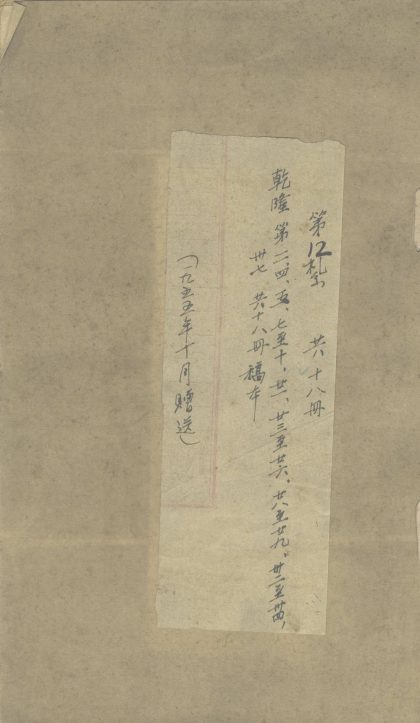 第12帙 共十八冊
乾隆 第二、四、五、七至十，廿一、廿三至廿六、廿八至廿九，卅二至卅四，
卅七 共十八冊 稿本
（一九五五年十月贈送）